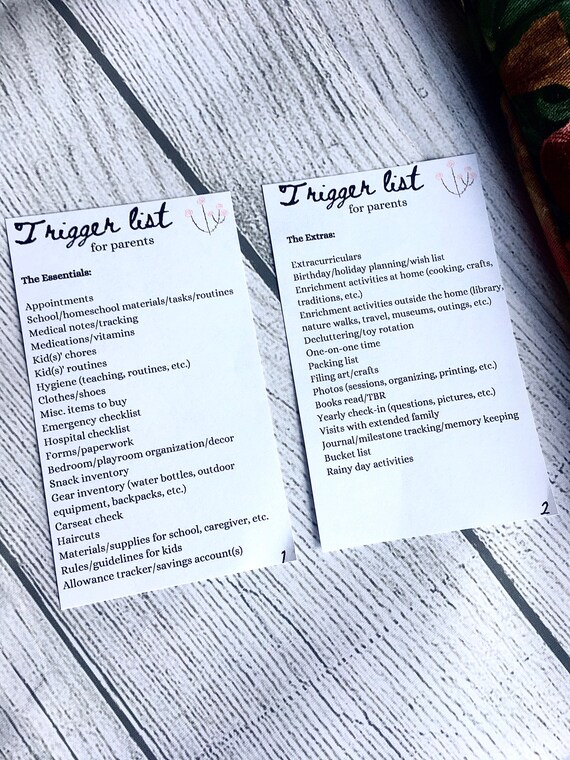 Trigger list
for parents
The Essentials:
Appointments
School/homeschool materials/tasks/routines
Medical notes/tracking
Medications/vitamins
Kid(s)' chores
Kid(s)' routines
Hygiene (teaching, routines, etc.)
Clothes/shoes
Misc. items to buy
Emergency checklist
Hospital checklist
Forms/paperwork
Bedroom/playroom organization/decor
Snack inventory
Gear inventory (water bottles, outdoor
equipment, backpacks, etc.)
Carseat check
Haircuts
Materials/supplies for school, caregiver, etc.
Rules/guidelines for kids
Allowance tracker/savings account(s)
1
Trigger list
for parents
The Extras:
Extracurriculars
Birthday/holiday planning/wish list
Enrichment activities at home (cooking, crafts,
traditions, etc.)
Enrichment activities outside the home (library,
nature walks, travel, museums, outings, etc.)
Decluttering/toy rotation
One-on-one time
Packing list
Filing art/crafts
Photos (sessions, organizing, printing, etc.)
Books read/TBR
Yearly check-in (questions, pictures, etc.)
Visits with extended family
Journal/milestone tracking/memory keeping
Bucket list
Rainy day activities
2